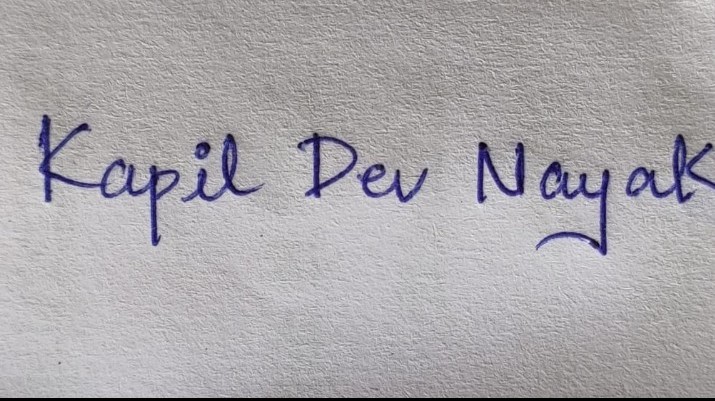 Kapil Dev Nayak